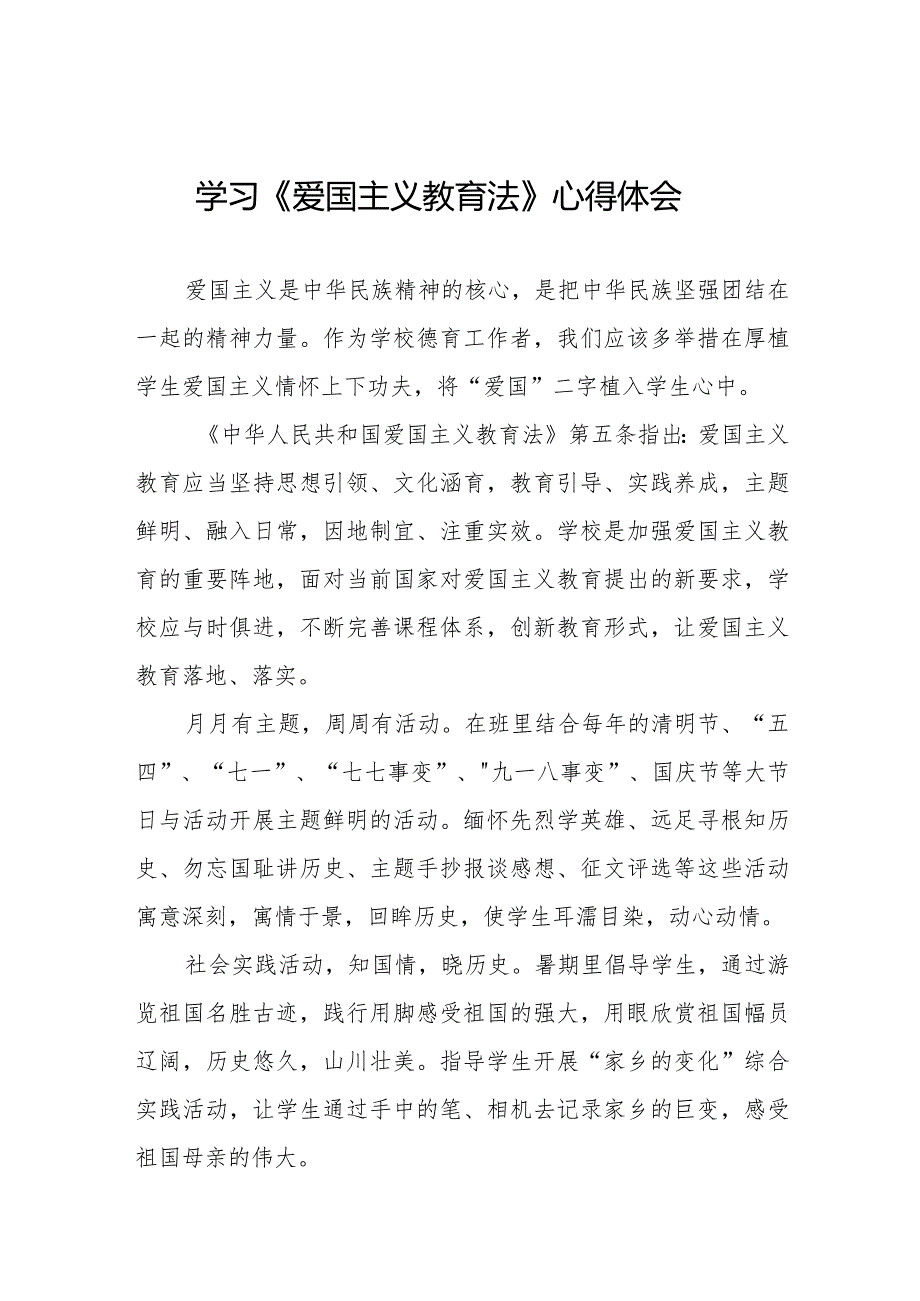 学习《爱国主义教育法》心得体会
爱国主义是中华民族精神的核心，是把中华民族坚强团结在
一起的精神力量。作为学校德育工作者，我们应该多举措在厚植
学生爱国主义情怀上下功夫，将“爱国”二字植入学生心中。
《中华人民共和国爱国主义教育法》第五条指出：爱国主义
教育应当坚持思想引领、文化涵育，教育引导、实践养成，主题
鲜明、融入日常，因地制宜、注重实效。学校是加强爱国主义教
育的重要阵地，面对当前国家对爱国主义教育提出的新要求，学
校应与时俱进，不断完善课程体系，创新教育形式，让爱国主义
教育落地、落实。
月月有主题，周周有活动。在班里结合每年的清明节、“五
四”、“七一”、“七七事变”、"九一八事变”、国庆节等大节
日与活动开展主题鲜明的活动。缅怀先烈学英雄、远足寻根知历
史、勿忘国耻讲历史、主题手抄报谈感想、征文评选等这些活动
寓意深刻，寓情于景，回眸历史，使学生耳濡目染，动心动情。
社会实践活动，知国情，晓历史。暑期里倡导学生，通过游
览祖国名胜古迹，践行用脚感受祖国的强大，用眼欣赏祖国幅员
辽阔，历史悠久，山川壮美。指导学生开展“家乡的变化”综合
实践活动，让学生通过手中的笔、相机去记录家乡的巨变，感受
祖国母亲的伟大。